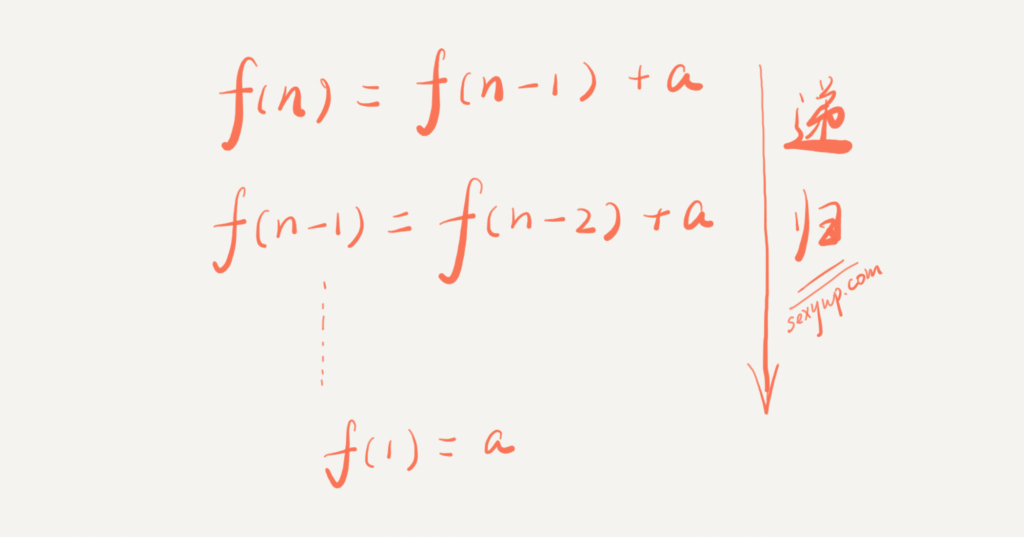 f(n) = f(n-1) + a
f(n-1) = f(n-2) + a
f(1) = a
递
归
sexywp.com